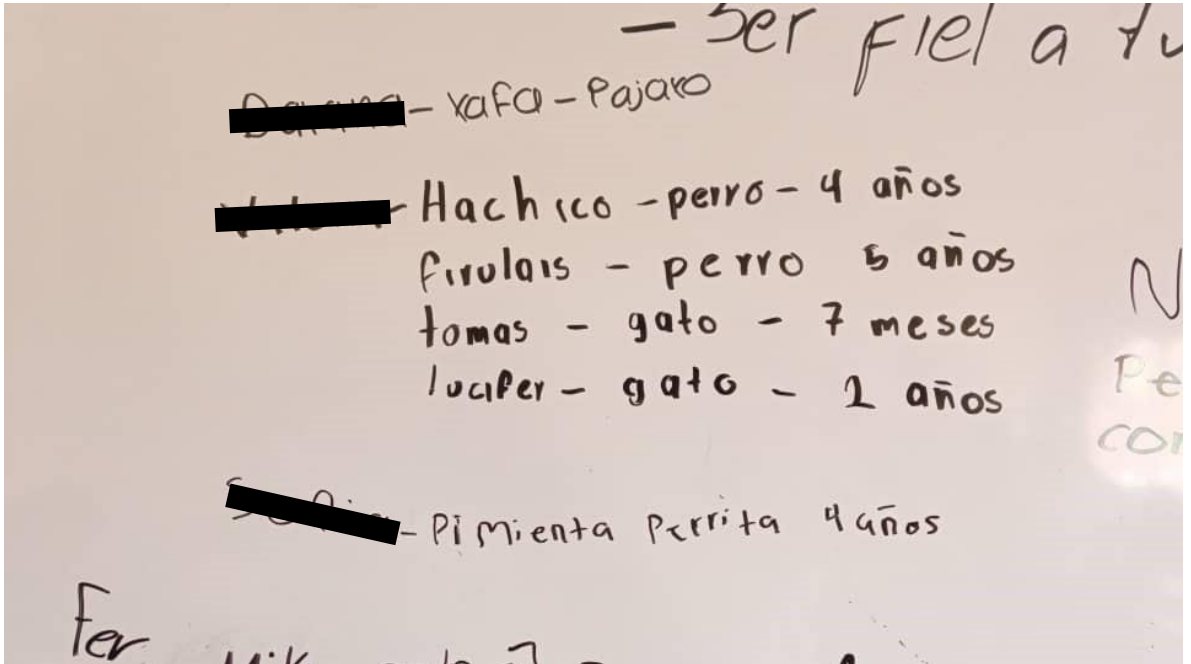 - Ser fiel a tu
- rafa - Pajaro
- Hachico - perro - 4 años
firulais - perro 5 años
tomas - gato - 7 meses
lucifer - gato - 2 años
- Pimienta Perrita 4 años
Fer